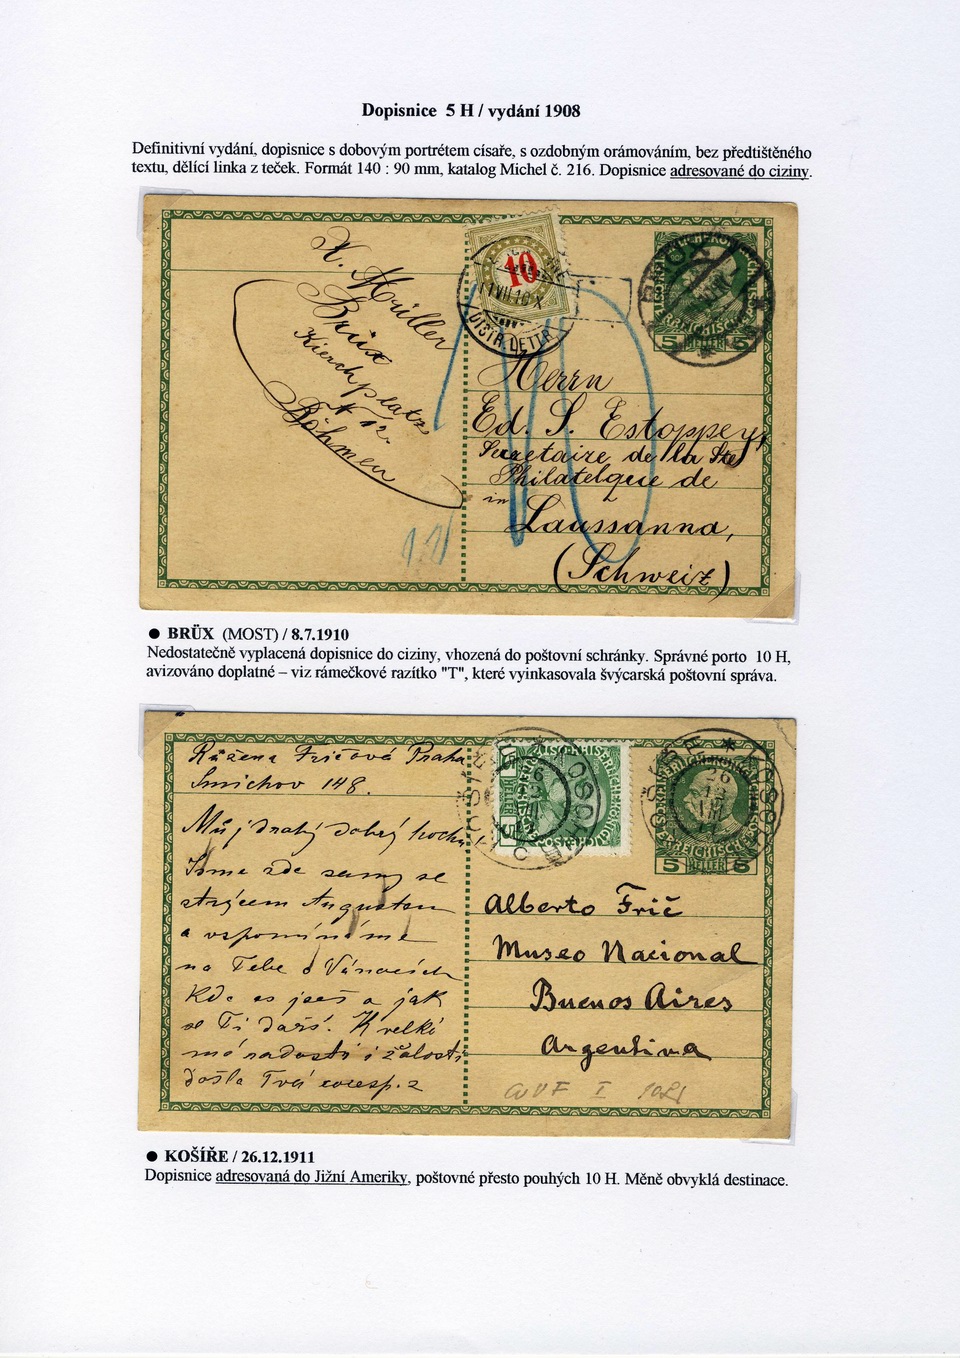 Dopisnice 5 H / vydání 1908
Definitivní vydání, dopisnice s dobovým portrétem císaře, s ozdobným orámováním, bez předtištěného
textu, dělící linka z teček. Formát 140 : 90 mm, katalog Michel č. 216. Dopisnice adresované do ciziny.
X. Müller
Brüx
Kierchplatz
12.
Böhmen
10
DISTR. LETTR.
BRÜX
5 HELLER 5
Herrn
Ed. S. Estoppey,
Secretaire de la Sté
Philatelique de
in
Laussanna,
(Schweiz)
• BRÜX (MOST) / 8.7.1910
Nedostatečně vyplacená dopisnice do ciziny, vhozená do poštovní schránky. Správné porto 10 H,
avizováno doplatné – viz rámečkové razítko "T", které vyinkasovala švýcarská poštovní správa.
Růžena Fričová Praha
Smíchov 148.
Můj drahý dobrý hochu
Jsme zde samy se
strýcem Augustem
a vzpomínáme
na Tebe o Vánocích
Kde as jseš a jak
se Ti daří. K velké
mé radosti i žalosti
došla Tvá
5 HELLER 5
Alberto Frič
Museo Nacional
Buenos Aires
Argentina
• KOŠÍŘE / 26.12.1911
Dopisnice adresovaná do Jižní Ameriky, poštovné přesto pouhých 10 H. Měně obvyklá destinace.